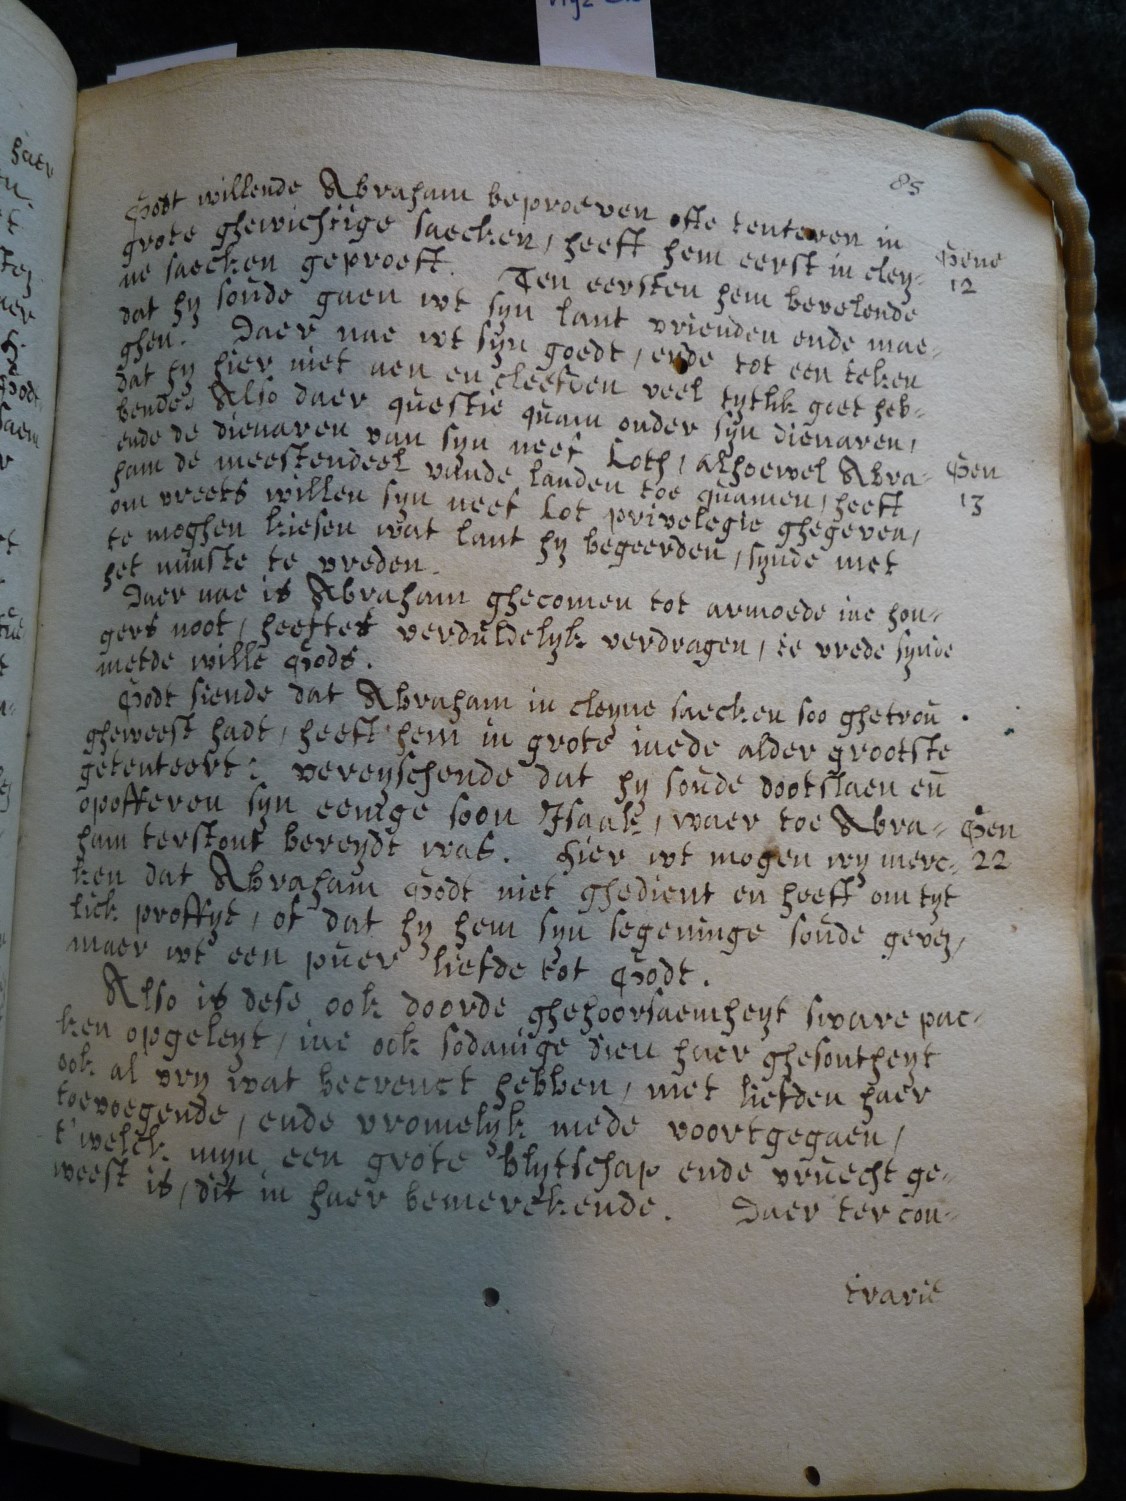 85
Godt willende Abraham beproeven ofte tenteren in
grote ghewichtige saecken, heeft hem eerst in cley-
ne saecken geproeft. Ten eersten hem bevelende
dat hy soude gaen wt syn lant vrienden ende mae-
ghen. Daer nae wt syn goedt, ende tot een teken
dat hy hier niet aen en cleefden veel tytlik goet heb-
bende. Also daer questie quam onder syn dienaren,
ende de dienaren van syn neef Loth, alhoewel Abra-
ham de meestendeel vande landen toe quamen, heeft
om vreets willen syn neef Lot privelegie ghegeven,
te moghen kiesen wat lant hy begeerden, synde met
het minste te vreden.
Daer nae is Abraham ghecomen tot armoede ine hon-
gers noot, heeftet verduldelyk verdragen, te vrede synde
metde wille Gods.
Godt siende dat Abraham in cleyne saecken soo ghetrou
gheweest hadt, heeft hem in grote inede alder grootste
getenteert: vereyschende dat hy soude dootslaen en
opofferen syn eenige soon Isaak, waer toe Abra-
ham terstont bereydt was. Hier wt mogen wy merc-
ken dat Abraham Godt niet ghedient en heeft om tyt
lick proffyt, of dat hy hem syn segeninge soude geven,
maer wt een puer liefde tot Godt.
Also is dese ook doorde ghehoorsaemheyt sware pac-
ken opgeleyt, ine ook sodanige dien haer ghesontheyt
ook al vry wat becrenct hebben, met liefden haer
toevoegende, ende vromelyk mede voortgegaen,
t'welck myn een grote blytschap ende vruecht ge-
weest is, dit in haer bemerckende. Daer ter con-
trarie
Gene
12
Gen
13
Gen
22